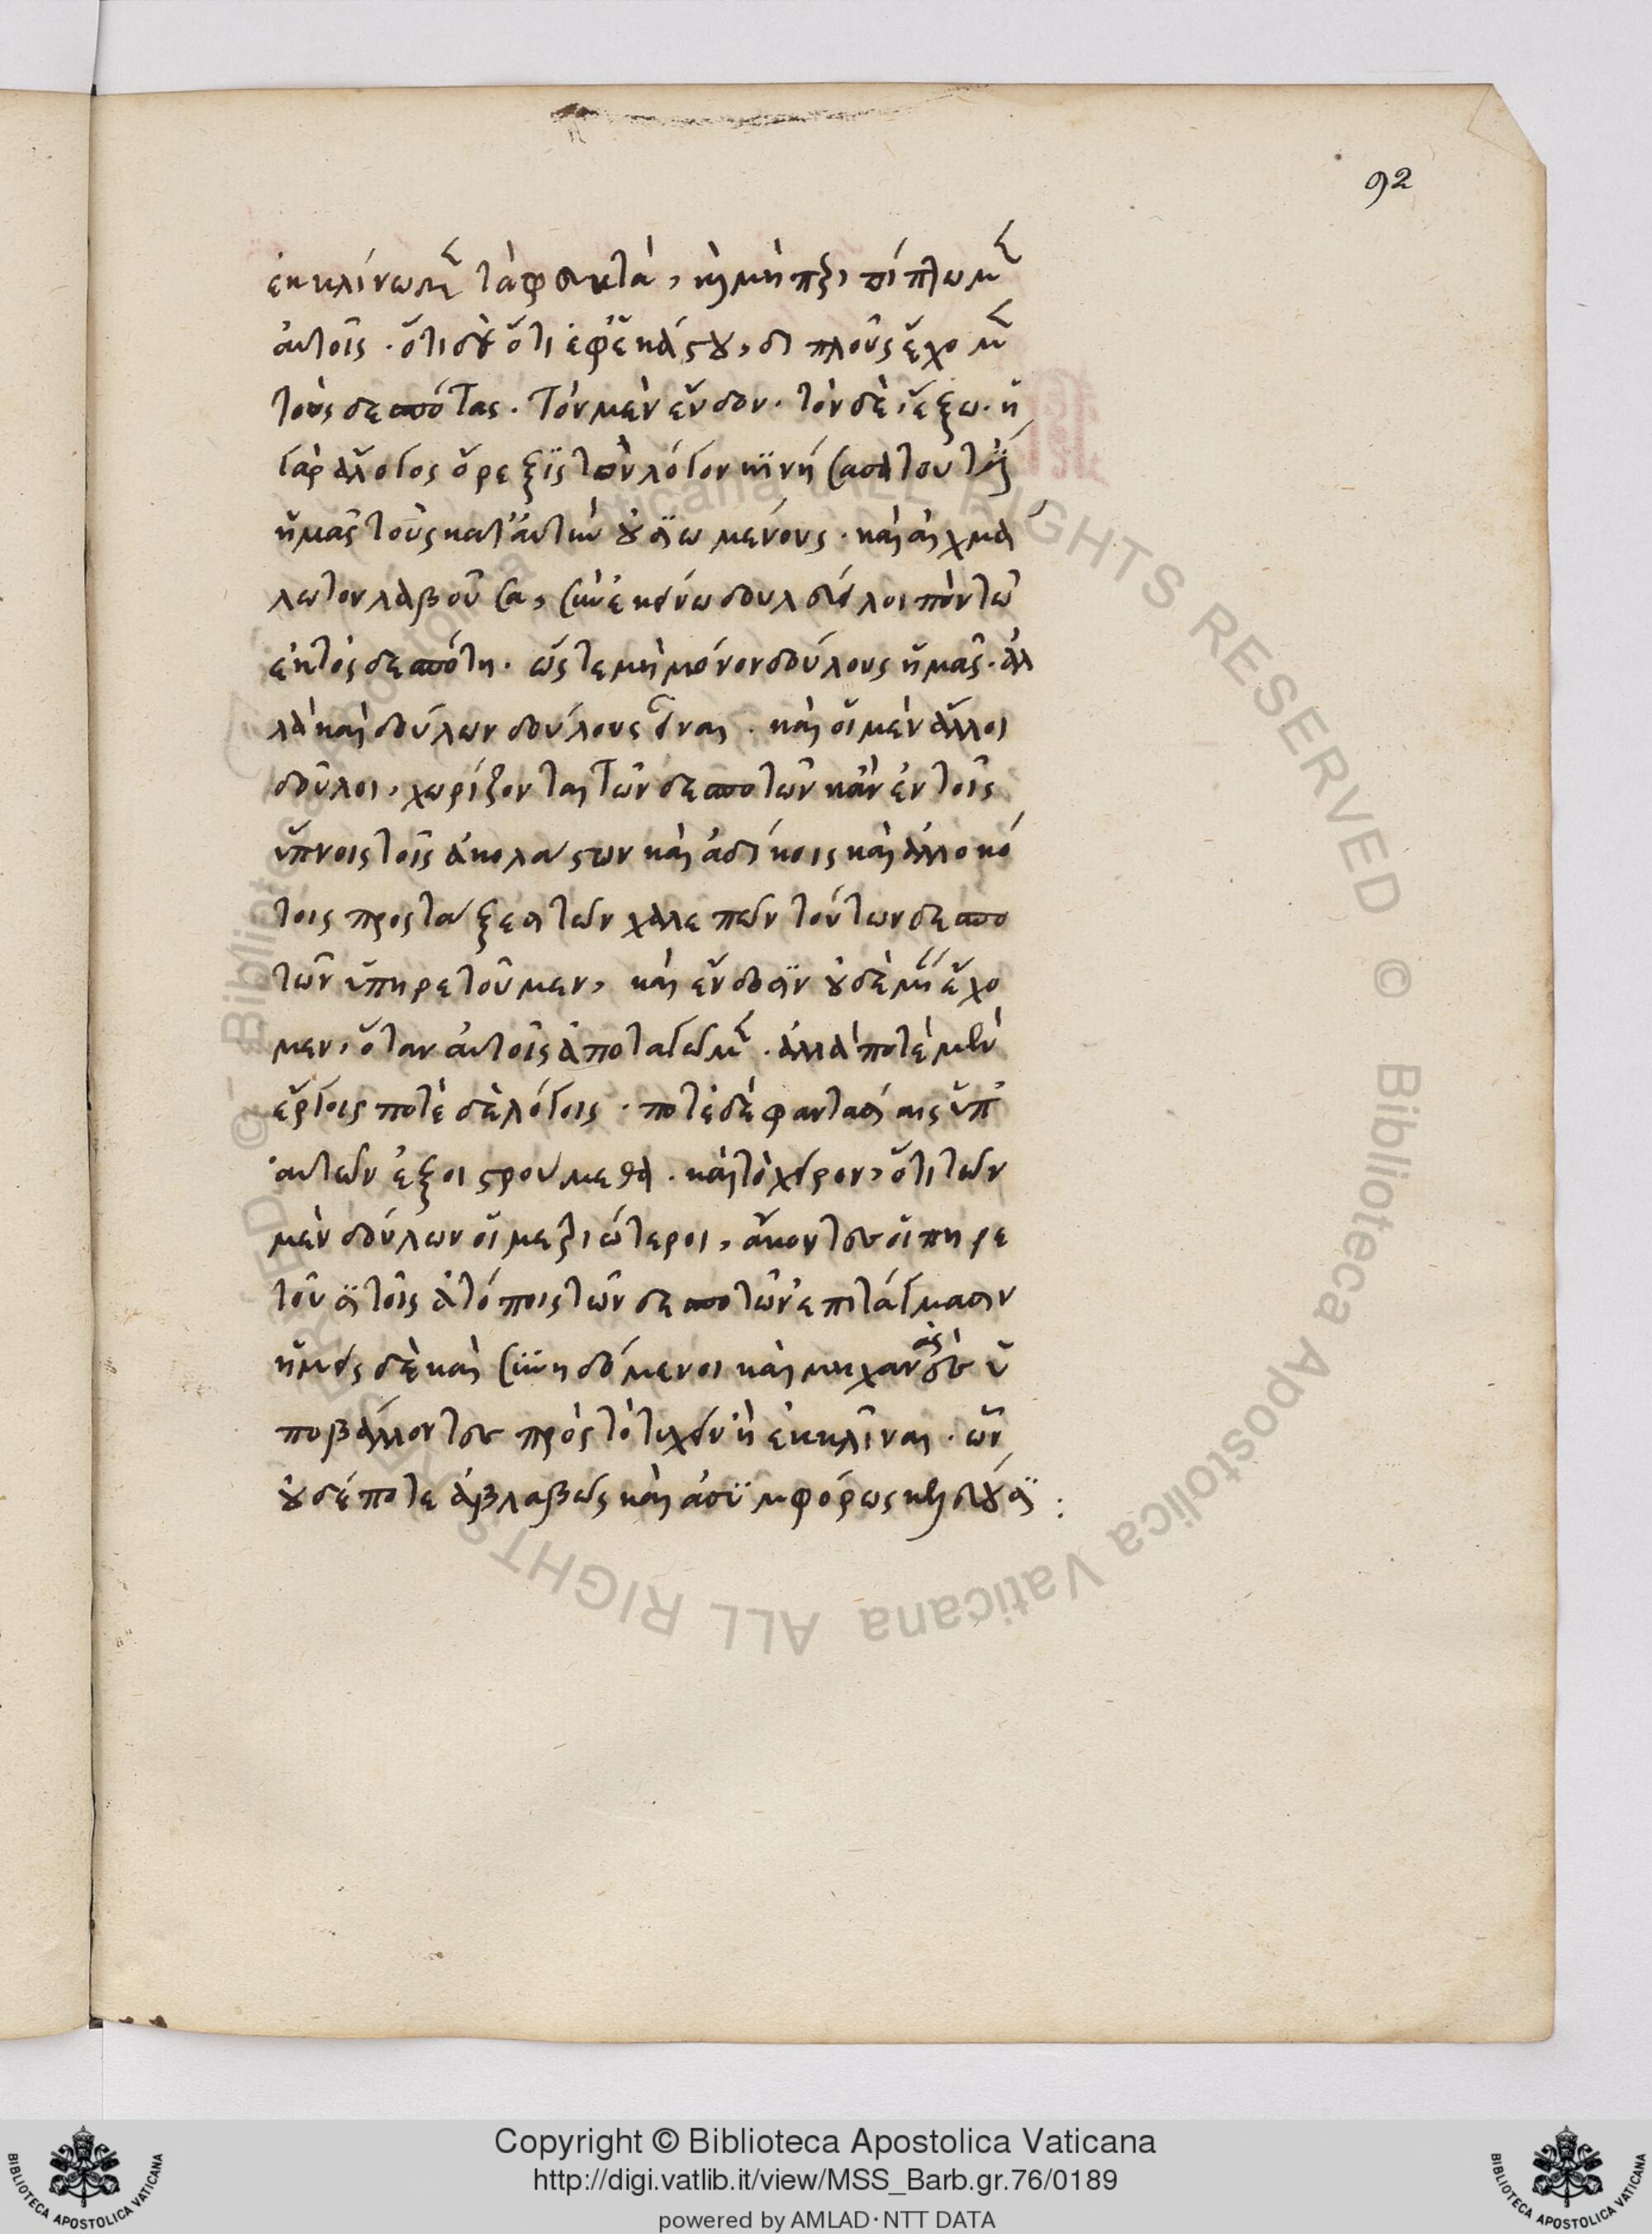 92
ἐκκλίνωμεν τὰ φευκτὰ, καὶ μὴ περιπίπτωμεν
αὐτοῖς. ὅτι δὲ ὅτι ἐφ' ἑκάστου, διπλοῦς ἔχομεν
τοὺς δεσπότας. τὸν μὲν ἔνδον. τὸν δὲ, ἔξω. ἡ
γὰρ ἄλογος ὄρεξις τὸν λόγον κινήσασα τουτέστι
ἡμᾶς τοὺς κατ' αὐτὴν οὐσιωμένους. καὶ αἰχμά
λωτον λαβοῦσα, σὺν ἐκείνω δουλεύει λοιπὸν τῶ
ἐκτὸς δεσπότη. ὥστε μὴ μόνον δούλους ἡμᾶς. ἀλ
λὰ καὶ δούλων δούλους εἶναι. καὶ οἱ μὲν ἄλλοι
δοῦλοι, χωρίζονται τῶν δεσποτῶν κἂν ἐν τοῖς
ὕπνοις τοῖς ἀκολάστων καὶ ἀδίκοις καὶ ἀλλοκό
τοις προστάξεσι τῶν χαλεπῶν τούτων δεσπο
τῶν ὑπηρετοῦμεν, καὶ ἔνδοσιν οὐδὲ μίαν ἔχο
μεν, ὅταν αὐτοῖς ἀποταγῶμεν. ἀλλὰ ποτὲ μὲν
ἔργοις ποτὲ δὲ λόγοις. ποτὲ δὲ φαντασίαις ὑπ'
αὐτῶν ἐξοιστρούμεθα. καὶ τὸ χεῖρον, ὅτι τῶν
μὲν δούλων οἱ μετριώτεροι, ἄκοντες ὑπηρε
τοῦσι τοῖς ἀτόποις τῶν δεσποτῶν ἐπιτάγμασιν
ἡμεῖς δὲ καὶ συνηδόμενοι καὶ μηχανὰς ὑ
ποβάλλοντες πρὸς τὸ τυχεῖν ἢ ἐκκλῖναι. ὧν
οὐδέποτε ἀβλαβῶς καὶ ἀσυμφόρως
Copyright © Biblioteca Apostolica Vaticana
http://digi.vatlib.it/view/MSS_Barb.gr.76/0189
powered by AMLAD·NTT DATA
BIBLIOTECA APOSTOLICA VATICANA
BIBLIOTECA APOSTOLICA VATICANA
© Biblioteca Apostolica Vaticana ALL RIGHTS RESERVED